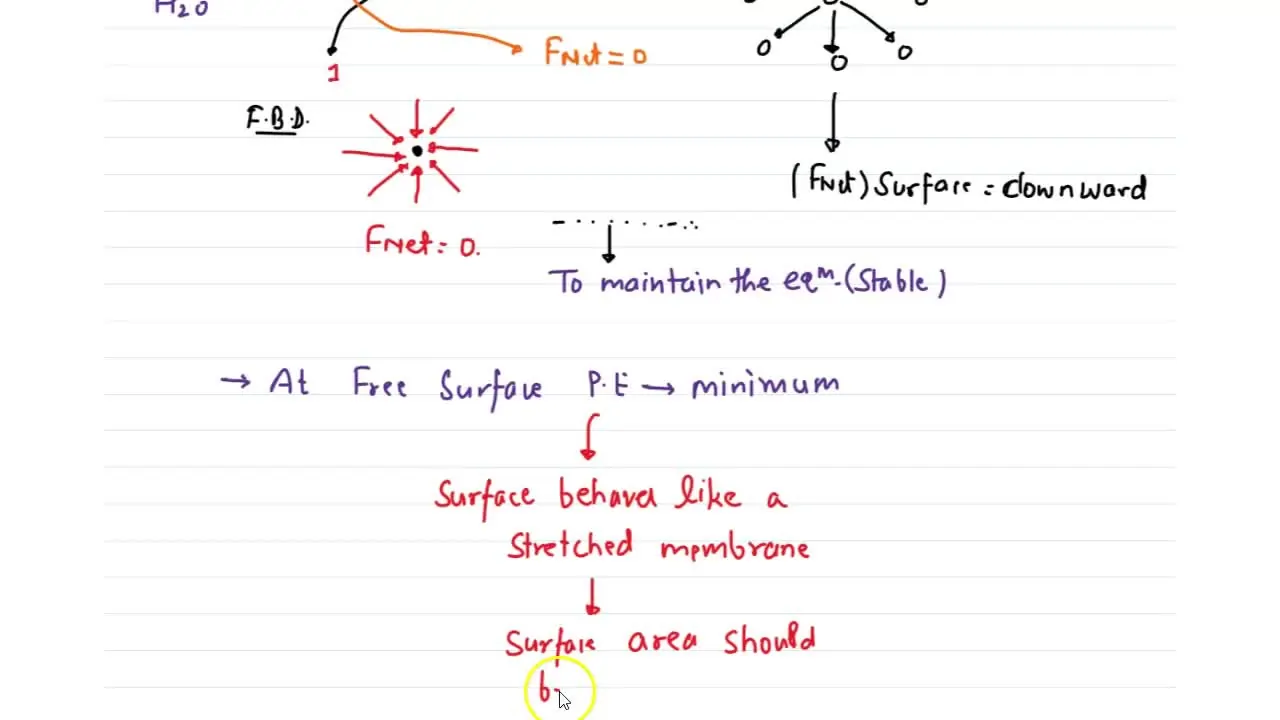 H2O
FNet = 0
1
F.B.D.
FNet = 0.
(FNet) Surface = downward
To maintain the eqm. (Stable)
→ At Free Surface P.E → minimum
Surface behaves like a
Stretched membrane
Surface area should
b